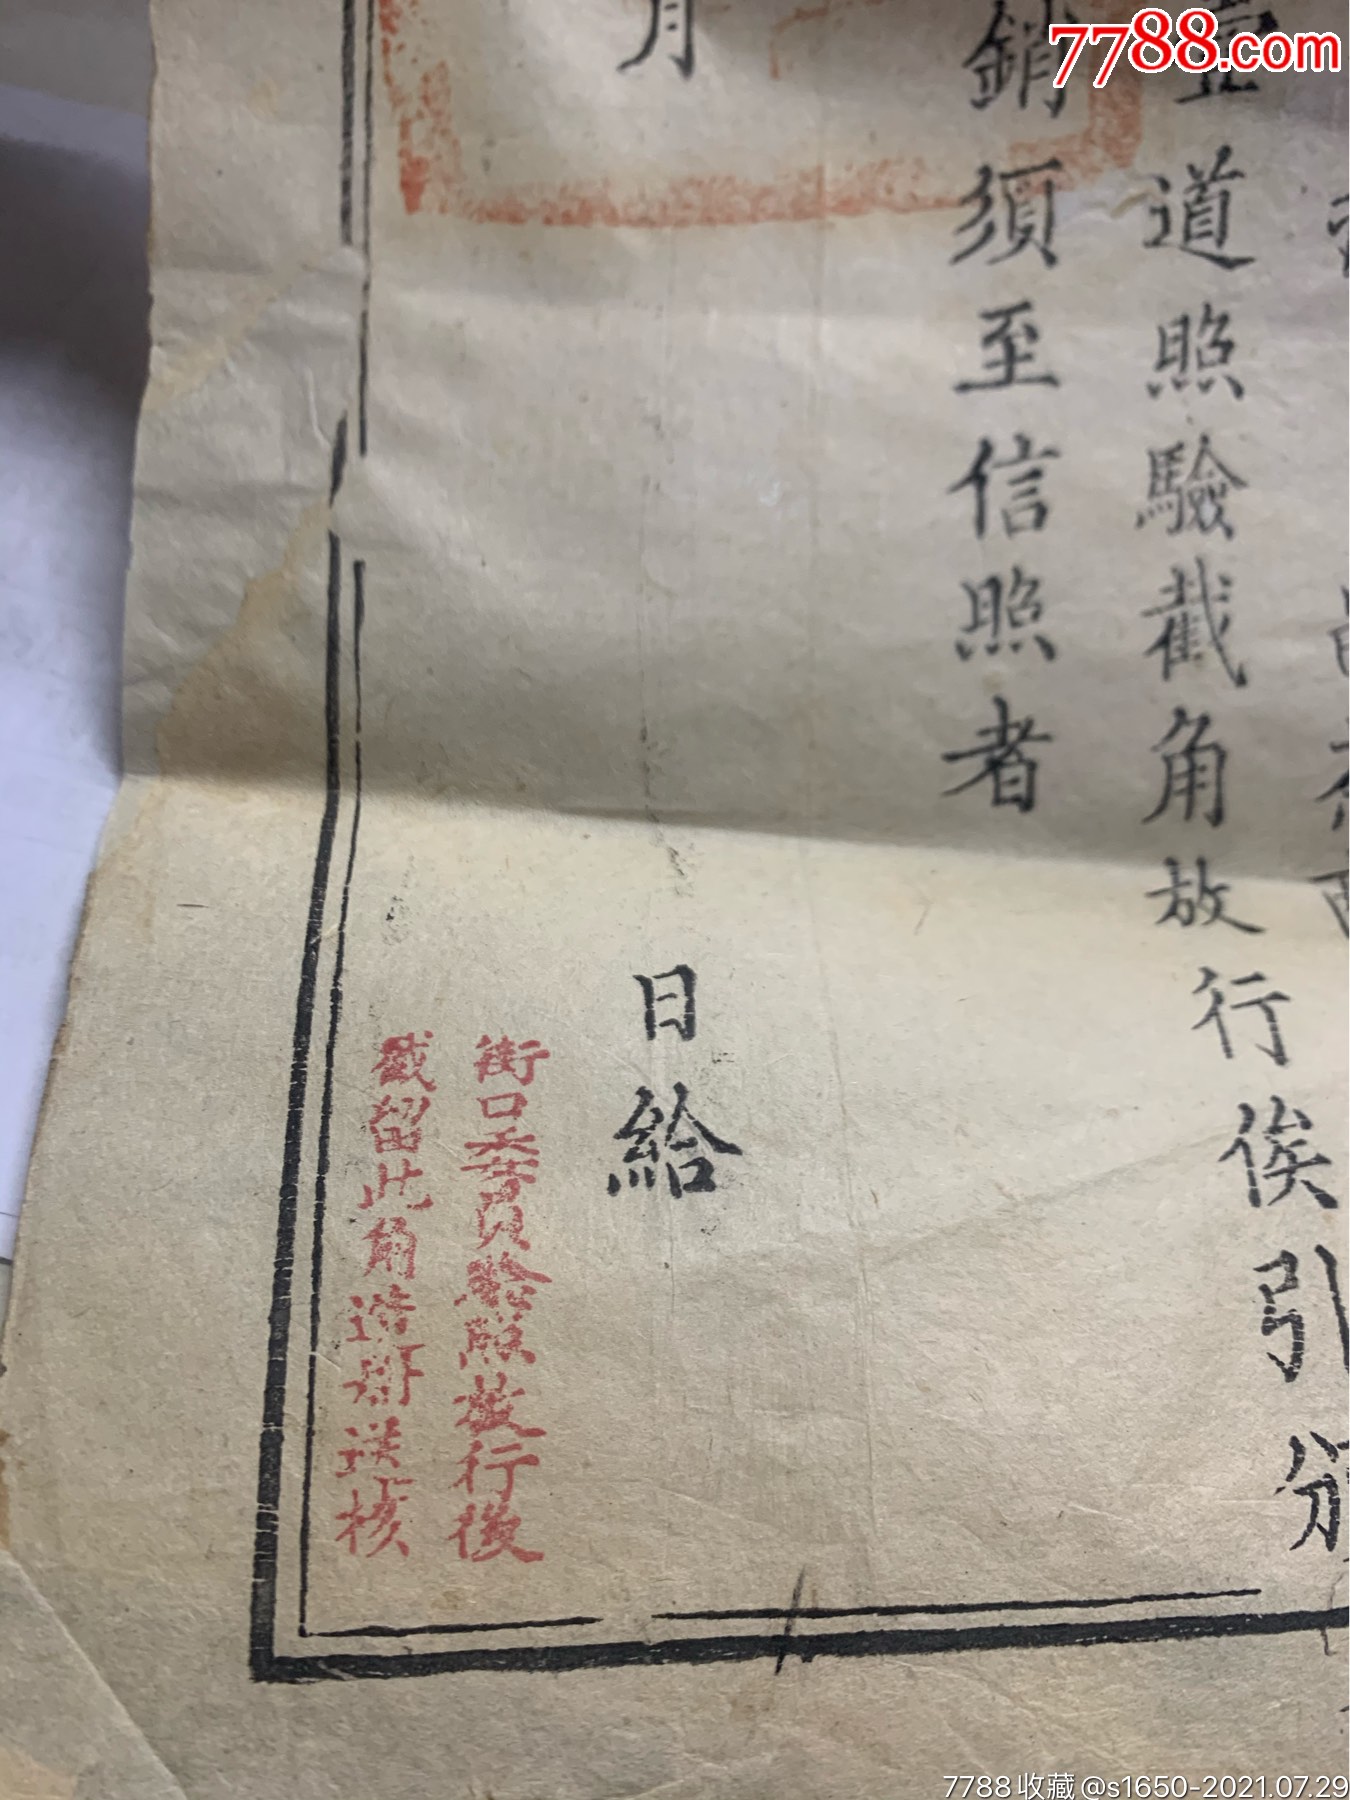 7788.com
壹道照驗截角放行俟引頒
銷須至信照者
月
日給
街口委員驗照放行後
截留此角造册送核
7788收藏@s1650-2021.07.29